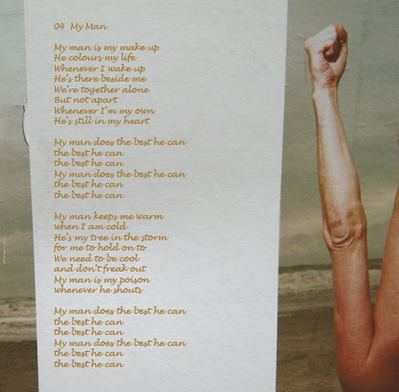 04 My Man
My man is my make up
He colours my life
Whenever I wake up
He's there beside me
We're together alone
But not apart
Whenever I'm my own
He's still in my heart
My man does the best he can
the best he can
the best he can
My man does the best he can
the best he can
the best he can
My man keeps me warm
when I am cold
He's my tree in the storm
for me to hold on to
We need to be cool
and don't freak out
My man is my poison
whenever he shouts
My man does the best he can
the best he can
the best he can
My man does the best he can
the best he can
the best he can